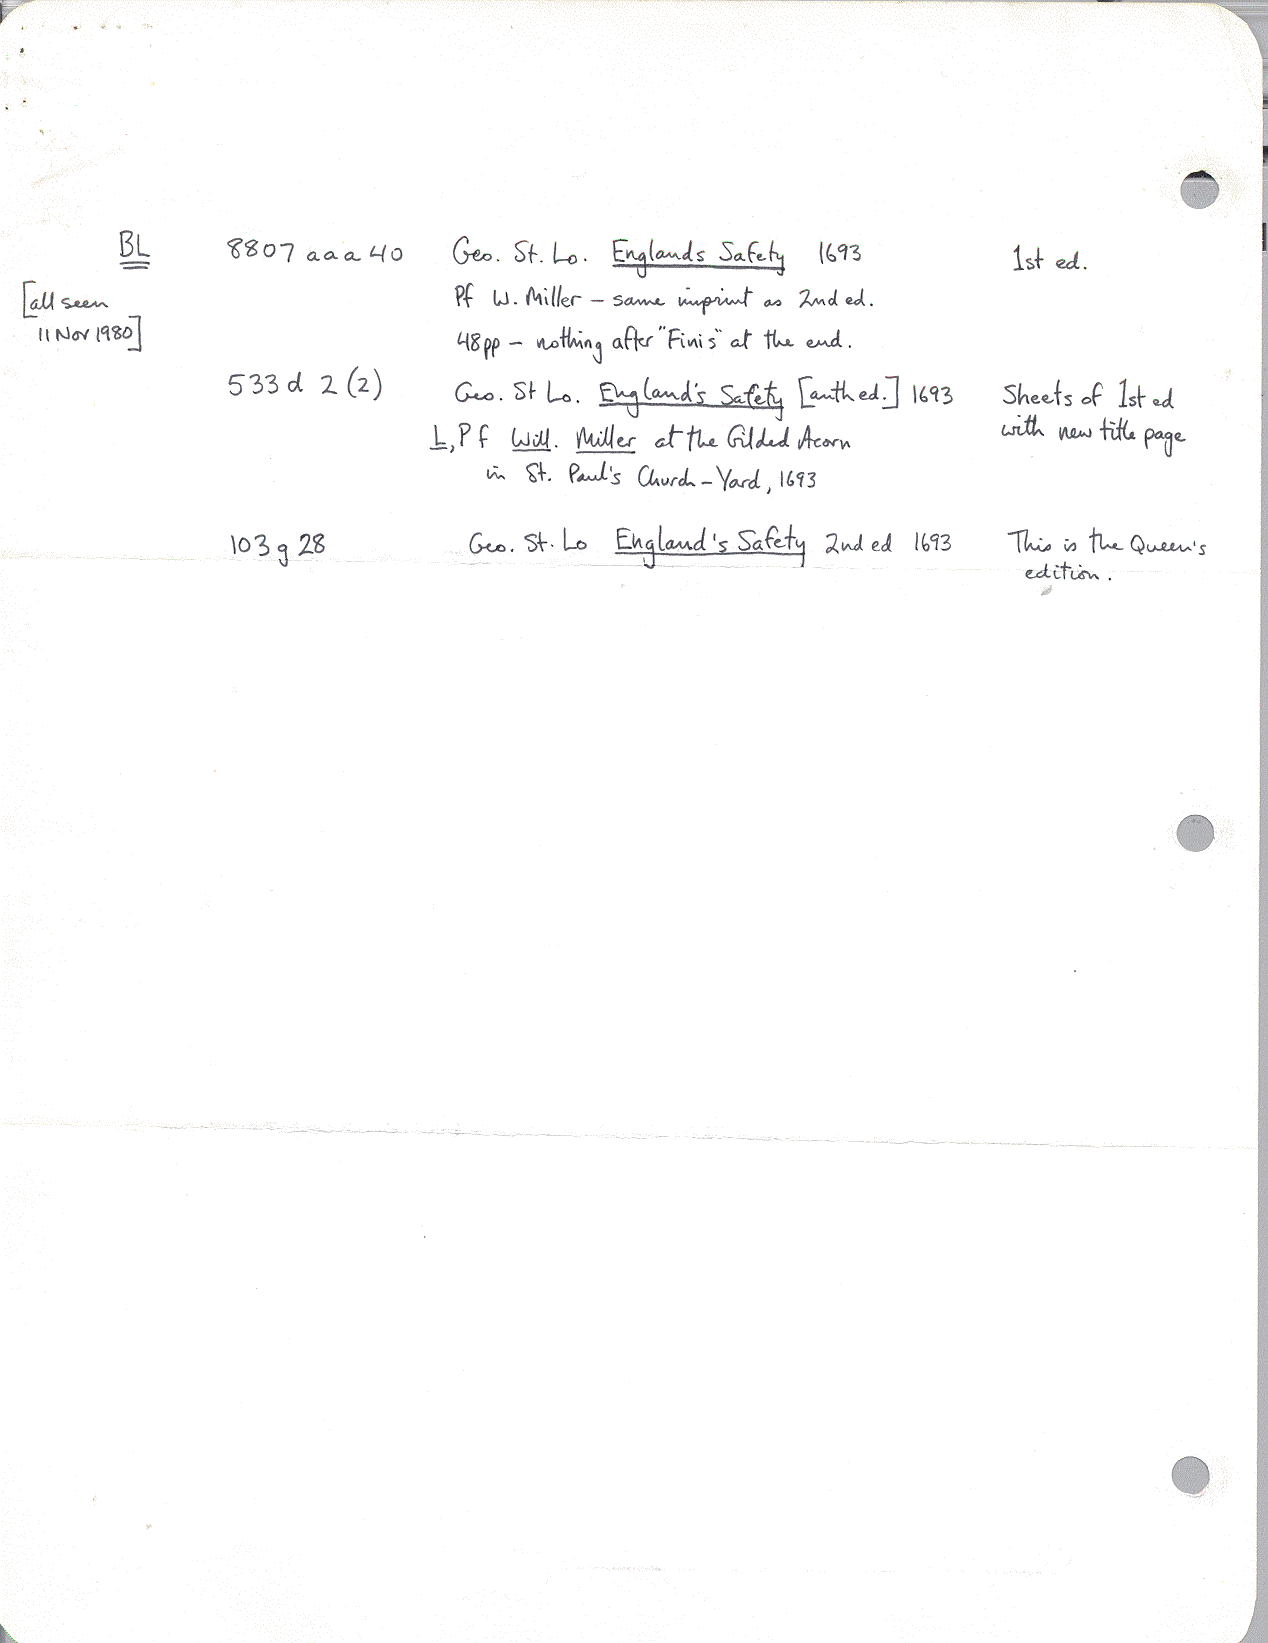 BL 8807 aaa 40 Geo. St. Lo. Englands Safety 1693 1st ed.
[all seen
11 Nov 1980]
Pf W. Miller – same imprint as 2nd ed.
48pp – nothing after "Finis" at the end.
533 d 2 (2) Geo. St Lo. England's Safety [anth ed.] 1693 Sheets of 1st ed
with new title page
L, Pf Will. Miller at the Gilded Acorn
in St. Paul's Church-Yard, 1693
103 g 28 Geo. St. Lo England's Safety 2nd ed 1693 This is the Queen's
edition.